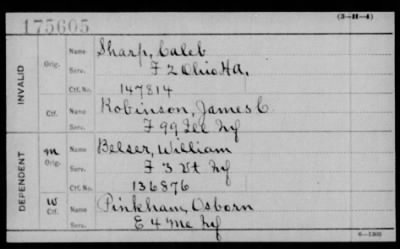 175605
(3-H-4)
INVALID
Orig.
Name Sharp, Caleb
Serv. F 2 Ohio H A.
Ctf. No. 147814
Ctf.
Name Robinson, James C
Serv. F 99 Ill Inf
DEPENDENT
m
Orig.
Name Belser, William
Serv. F 3 Vt Inf
Ctf. No. 136876
W
Ctf.
Name Pinkham, Osborn
Serv. E 4 Me Inf